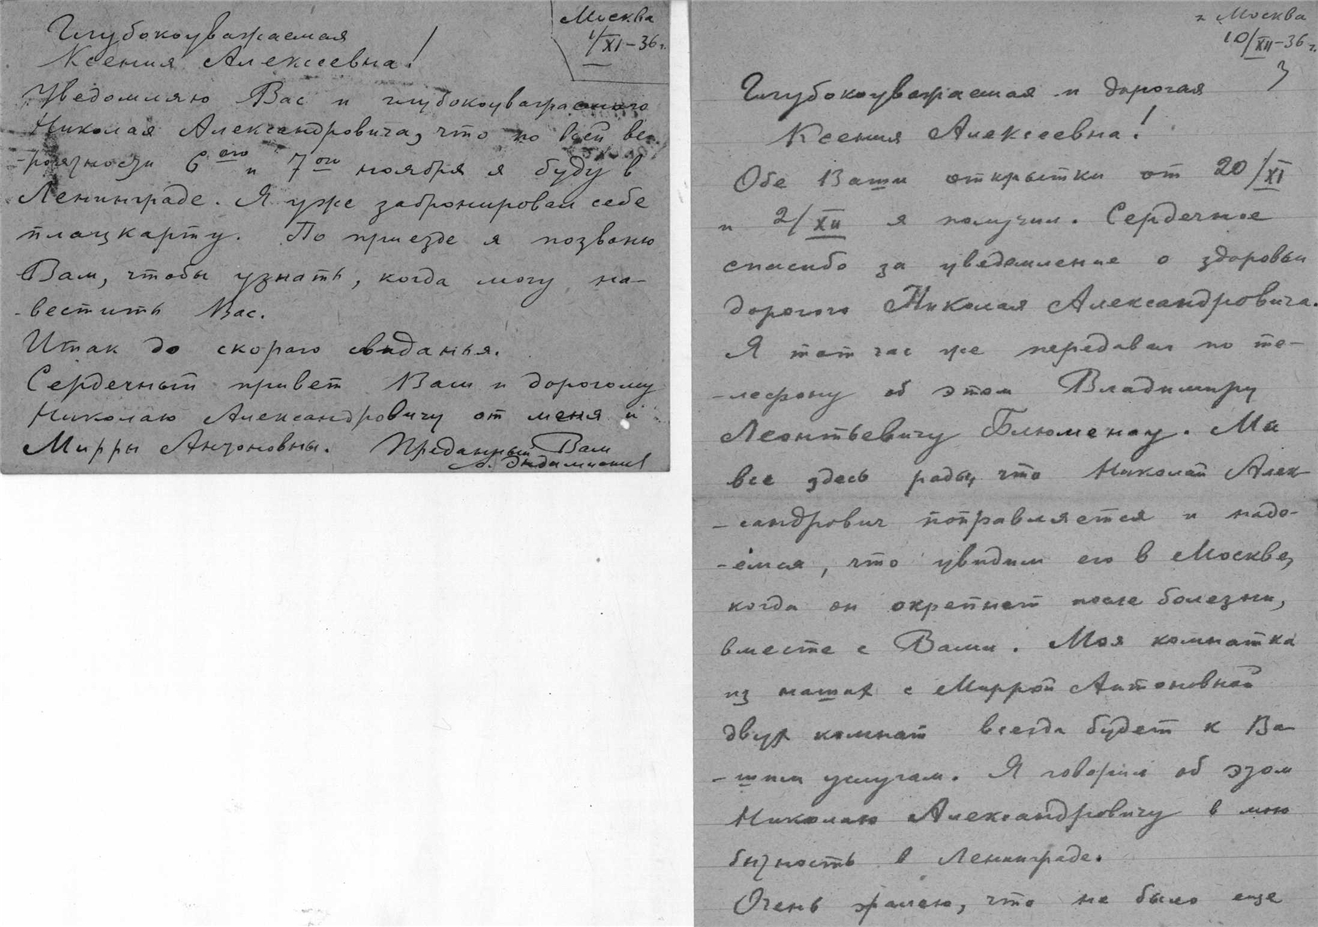 Москва
1/XI–36 г.
Глубокоуважаемая
Ксения Алексеевна!
Уведомляю Вас и глубокоуважаемого
Николая Александровича, что по всей ве-
-роятности 6ого и 7ого ноября я буду в
Ленинграде. Я уже забронировал себе
плацкарту. По приезде я позвоню
Вам, чтобы узнать, когда могу на-
-вестить Вас.
Итак до скорого свиданья.
Сердечный привет Вам и дорогому
Николаю Александровичу от меня и
Мирры Антоновны. Преданный Вам
г. Москва
10/XII–36 г.
3
Глубокоуважаемая и дорогая
Ксения Алексеевна!
Обе Ваши открытки от 20/XI
и 2/XII я получил. Сердечное
спасибо за уведомление о здоровьи
дорогого Николая Александровича.
Я тотчас же передавал по те-
-лефону об этом Владимиру
Леонтьевичу Блюменау. Мы
все здесь рады, что Николай Алек-
-сандрович поправляется и надо-
-емся, что увидим его в Москве,
когда он окрепнет после болезни,
вместе с Вами. Моя комнатка
из наших с Миррой Антоновной
двух комнат всегда будет к Ва-
-шим услугам. Я говорил об этом
Николаю Александровичу в мою
бытность в Ленинграде.
Очень жалею, что не было еще